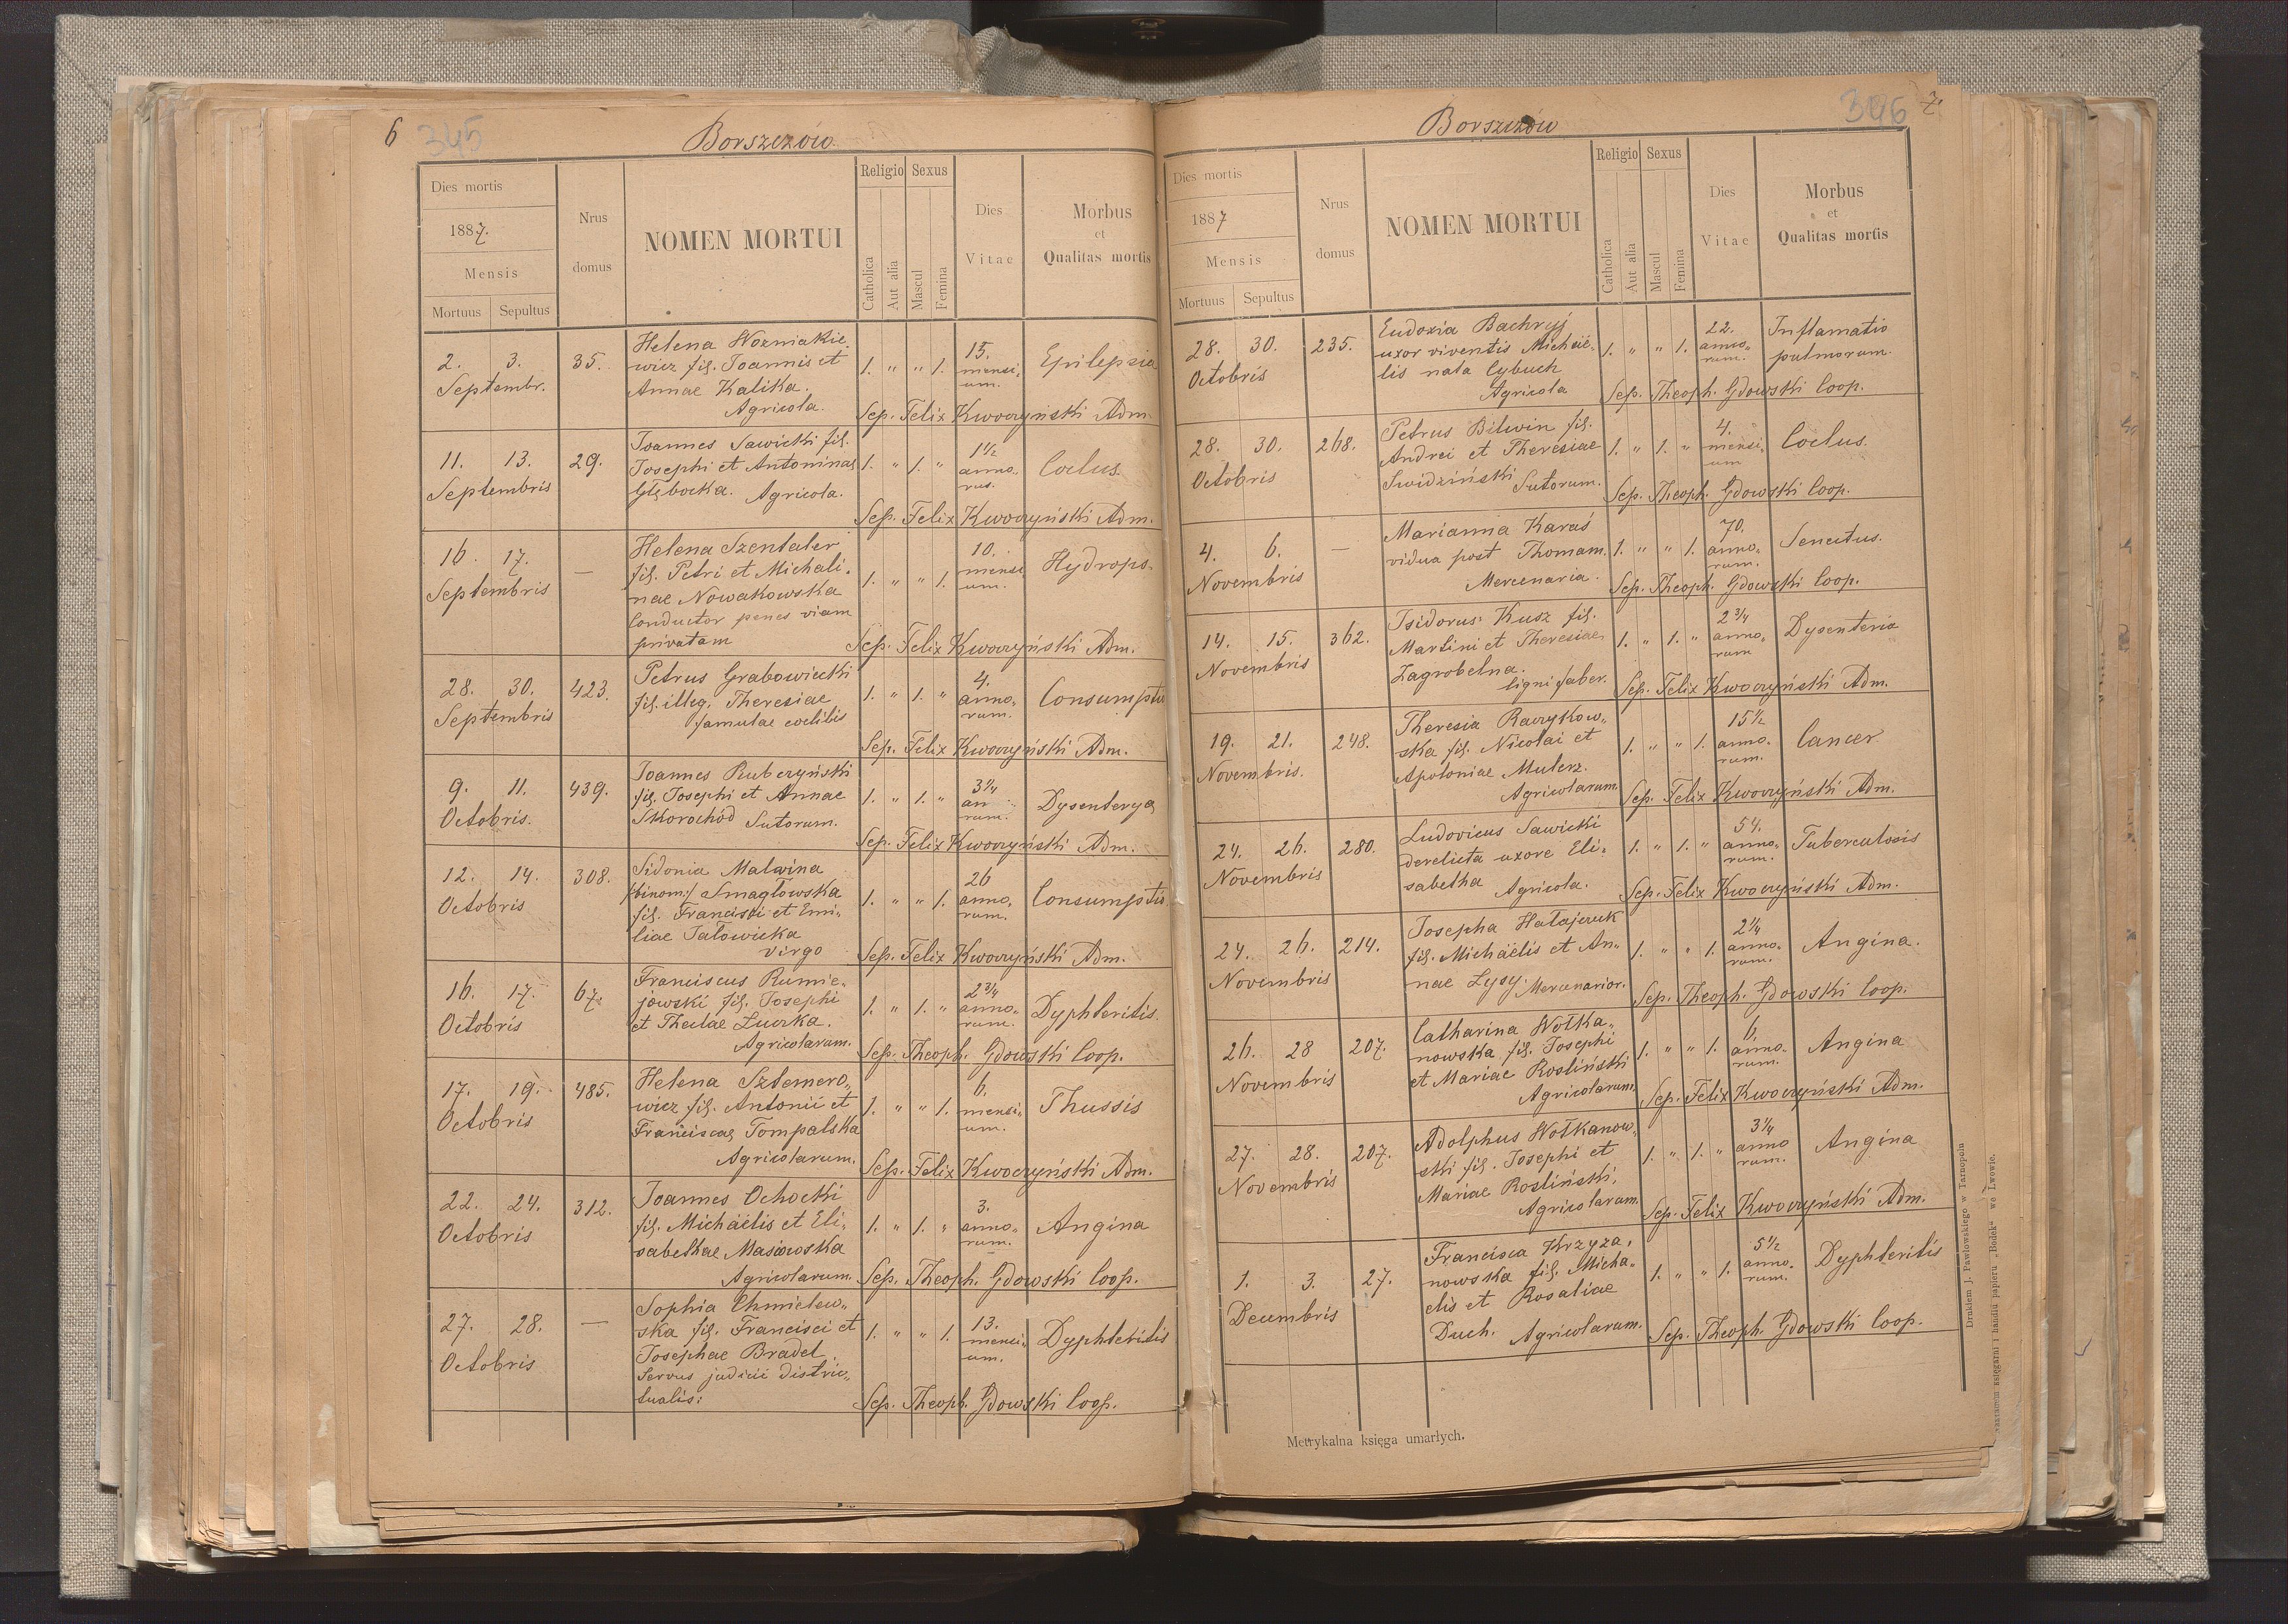 6
345
Borszczów
Dies mortis
1887.
Mensis
Mortuus Sepultus
Nrus domus
NOMEN MORTUI
Religio
Catholica
Aut alia
Sexus
Mascul
Femina
Dies Vitae
Morbus
et
Qualitas mortis
2. 3. 35. Helena Wozniakie-
Septembr. wicz fil. Joannis et 1. " " 1. 15. mensi- um. Epilepsia
Annae Kalika.
Agricola. Sep. Felix Kwoczyński Adm.
11. 13. 29. Joannes Sawicki fil.
Septembris Josephi et Antoninae 1. " 1. " 1 1/2 anno- rus. Coclus.
Głębocka. Agricola.
Sep. Felix Kwoczyński Adm.
16. 17. — Helena Szentaler
Septembris fil. Petri et Michali- 1. " " 1. 10. mensi um. Hydrops.
nae Nowakowska
Conductor penes viam
privatam Sep. Felix Kwoczyński Adm.
28. 30. 423. Petrus Grabowiecki
Septembris fil. illeg. Theresiae 1. " 1. " 4. anno- rum. Consumptio
famulae coelibis
Sep. Felix Kwoczyński Adm.
9. 11. 439. Joannes Rubczyński
Octobris. fil. Josephi et Annae 1. " 1. " 3 1/4 an rum. Dysenterya
Skorochod Sutorum.
Sep. Felix Kwoczyński Adm.
12. 14. 308. Sidonia Malwina
Octobris /binom:/ Smagłowska 1. " " 1. 26 anno- rum. Consumptio
fil. Francisci et Emi-
liae Jałowicka
virgo Sep. Felix Kwoczyński Adm.
16. 17. 67. Franciscus Rumie-
Octobris jowski fil. Josephi 1. " 1. " 2 3/4 anno- rum. Dyphteritis.
et Theclae Luczka.
Agricolarum. Sep. Theoph. Gdowski Coop.
17. 19. 485. Helena Sztemero-
Octobris wicz fil. Antonii et 1. " " 1. 6. mensi- um. Thussis
Franciscae Tompalska
Agricolarum. Sep. Felix Kwoczyński Adm.
22. 24. 312. Joannes Ochocki
Octobris fil. Michäelis et Eli- 1. " 1. " 3. anno- rum. Angina
sabethae
Agricolarum. Sep. Theoph. Gdowski Coop.
27. 28. — Sophia Chmielew-
Octobris ska fil. Francisci et 1. " " 1. 13. mensi- um. Dyphteritis
Josephae Bradel.
Servus judicii distric-
tualis: Sep. Theoph. Gdowski Coop.
7.
Borszczów
Dies mortis
1887
Mensis
Mortuus Sepultus
Nrus domus
NOMEN MORTUI
Religio
Catholica
Aut alia
Sexus
Mascul
Femina
Dies Vitae
Morbus
et
Qualitas mortis
28. 30. 235. Eudoxia Bachryj
Octobris uxor viventis Michäe- 1. " " 1. 22. anno- rum. Inflamatio
lis nata Cybuch pulmorum.
Agricola Sep. Theoph. Gdowski Coop.
28. 30. 268. Petrus Bilwin fil.
Octobris Andrei et Theresiae 1. " 1. " 4. mensi- um Coclus.
Swidziński Sutorum. Sep. Theoph. Gdowski Coop.
4. 6. — Marianna Karaś
Novembris vidua post Thomam. 1. " " 1. 70. anno- rum. Senectus.
Mercenaria. Sep. Theoph. Gdowski Coop.
14. 15. 362. Isidorus Kusz fil.
Novembris Martini et Theresiae 1. " 1. " 2 3/4 anno- rum Dysenteria
Zagrobelna.
ligni faber. Sep. Felix Kwoczyński Adm.
19. 21. 248. Theresia Raczykow-
Novembris. ska fil. Nicolai et 1. " " 1. 15 1/2 anno- rum. Cancer
Apoloniae Mulerz.
Agricolarum Sep. Felix Kwoczyński Adm.
24. 26. 280. Ludovicus Sawicki
Novembris derelicta uxore Eli- 1. " 1. " 54. anno- rum. Tuberculosis
sabetha Agricola. Sep. Felix Kwoczyński Adm.
24. 26. 214. Josepha Hałajczuk
Novembris fil. Michäelis et An- 1. " " 1. 2 1/4 anno- rum. Angina.
nae Łysy. Mercenarior. Sep. Theoph. Gdowski Coop.
26. 28 207. Catharina Wołka-
Novembris nowska fil. Josephi 1. " " 1. 6. anno- rum. Angina
et Mariae Rosliński
Agricolarum. Sep. Felix Kwoczyński Adm.
27. 28. 207. Adolphus Wołkanow-
Novembris ski fil. Josephi et 1. " 1. " 3 1/4 anno rum. Angina
Mariae Rosliński,
Agricolarum Sep. Felix Kwoczyński Adm.
1. 3. 27. Francisca Krzyza-
Decembris nowska fil. Micha- 1. " " 1. 5 1/2 anno- rum. Dyphteritis
elis et Rosaliae
Duch. Agricolarum. Sep. Theoph. Gdowski Coop.
Metrykalna księga umarłych.
Drukiem J. Pawłowskiego w Tarnopolu
Nakładem księgarni i handlu papieru „Bodek“ we Lwowie.